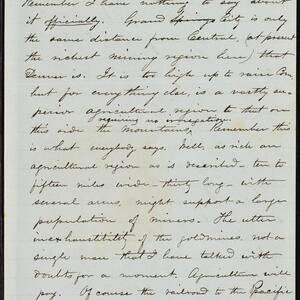 Remember I have nothing to say about
it officially. Grand City is only
the same distance from Central, (at present
the richest mining region here) that
Denver is. It is too high up to raise Corn
but for everything else, is a vastly su-
perior agricultural region to that on
requiring no irrigation.
this side the Mountains, Remember this
is what everybody says. Well, as rich an
agricultural region as is described - ten to
fifteen miles wide - thirty long - with
several arms, might support a large
population of miners. The utter
inexhaustibility of the goldmines, not a
single man that I have talked with
doubts for a moment. Agriculture will
pay. Of course the railroad to the Pacific